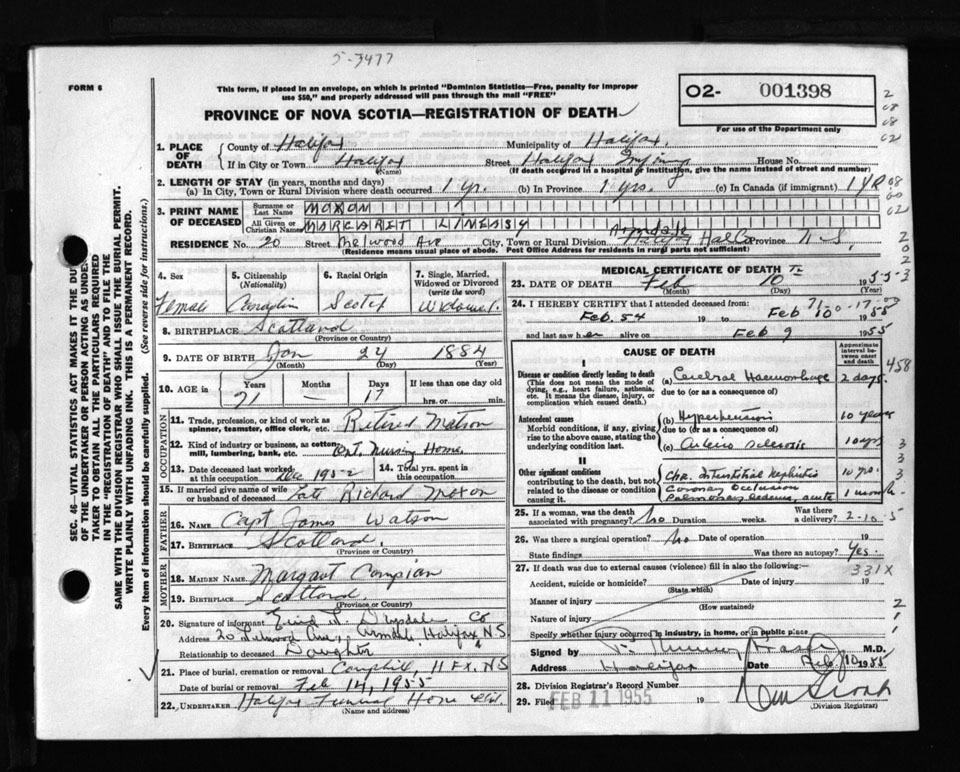 5-3477
FORM 6
This form, if placed in an envelope, on which is printed "Dominion Statistics—Free, penalty for improper
use $50," and properly addressed will pass through the mail "FREE"
02- 001398
For use of the Department only
PROVINCE OF NOVA SCOTIA—REGISTRATION OF DEATH
SEC. 46—VITAL STATISTICS ACT MAKES IT THE DUTY
OF THE UNDERTAKER OR PERSON ACTING AS UNDER-
TAKER TO OBTAIN ALL THE PARTICULARS REQUIRED
IN THE "REGISTRATION OF DEATH" AND TO FILE THE
SAME WITH THE DIVISION REGISTRAR WHO SHALL ISSUE THE BURIAL PERMIT.
WRITE PLAINLY WITH UNFADING INK. THIS IS A PERMANENT RECORD.
Every item of information should be carefully supplied. (See reverse side for instructions.)
1. PLACE OF DEATH County of Halifax Municipality of Halifax
If in City or Town Halifax Street Halifax Infirmary House No.
(Name) (If death occurred in a hospital or institution, give the name instead of street and number)
2. LENGTH OF STAY (in years, months and days)
(a) In City, Town or Rural Division where death occurred 1 yr. (b) In Province 1 yrs. (c) In Canada (if immigrant) 1 YR
3. PRINT NAME OF DECEASED Surname or Last Name MOXON
All Given or Christian Names MARGARET LINDSAY
RESIDENCE No. 20 Street Melwood Ave City, Town or Rural Division Armdale Halifax Province N-S.
(Residence means usual place of abode. Post Office Address for residents in rural parts not sufficient)
4. Sex Female
5. Citizenship (Nationality) Canadian
6. Racial Origin Scotch
7. Single, Married, Widowed or Divorced (write the word) Widowed
8. BIRTHPLACE Scotland
(Province or Country)
9. DATE OF BIRTH Jan 24 1884
(Month) (Day) (Year)
10. AGE in Years 71 Months — Days 17 If less than one day old hrs. or min.
OCCUPATION
11. Trade, profession, or kind of work as spinner, teamster, office clerk, etc. Retired Matron
12. Kind of industry or business, as cotton mill, lumbering, bank, etc. Nursing Home.
13. Date deceased last worked at this occupation Dec 1952
14. Total yrs. spent in this occupation
15. If married give name of wife or husband of deceased Late Richard Moxon
FATHER
16. NAME Capt James Watson
17. BIRTHPLACE Scotland.
(Province or Country)
MOTHER
18. MAIDEN NAME Margaret
19. BIRTHPLACE Scotland
(Province or Country)
20. Signature of informant Drysdale
Address 20 Ave, Armdale Halifax Co N.S.
Relationship to deceased Daughter
21. Place of burial, cremation or removal Camphill, HFX. NS
Date of burial or removal Feb 14, 1955
22. UNDERTAKER Halifax Funeral Home Ltd.
(Name and address)
MEDICAL CERTIFICATE OF DEATH
23. DATE OF DEATH Feb 10 1955
(Month) (Day)
24. I HEREBY CERTIFY that I attended deceased from:
Feb. 54 19 to Feb 10 1955
and last saw her alive on Feb 9 1955
CAUSE OF DEATH
Approximate interval between onset and death
I
Disease or condition directly leading to death
(This does not mean the mode of dying, e.g., heart failure, asthenia, etc. It means the disease, injury, or complication which caused death.)
(a) Cerebral Haemorrhage 2 days.
due to (or as a consequence of)
Antecedent causes
Morbid conditions, if any, giving rise to the above cause, stating the underlying condition last.
(b) Hypertension 10 years
due to (or as a consequence of)
(c) Arterio sclerosis 10 yrs
II
Other significant conditions contributing to the death, but not related to the disease or condition causing it.
Chr. Interstitial Nephritis 10 yrs.
Coronary Occlusion
Pulmonary oedema, acute 1 month
458
25. If a woman, was the death associated with pregnancy? No Duration weeks. Was there a delivery?
2-10-5
26. Was there a surgical operation? No Date of operation 19
State findings Was there an autopsy? Yes.
27. If death was due to external causes (violence) fill in also the following:—
331X
Accident, suicide or homicide? Date of injury 19
(State which)
Manner of injury
(How sustained)
Nature of injury
Specify whether injury occurred in industry, in home, or in public place
Signed by M.D.
Address Halifax Date Feb 10 1955
28. Division Registrar's Record Number
29. Filed FEB 11 1955 19
(Division Registrar)